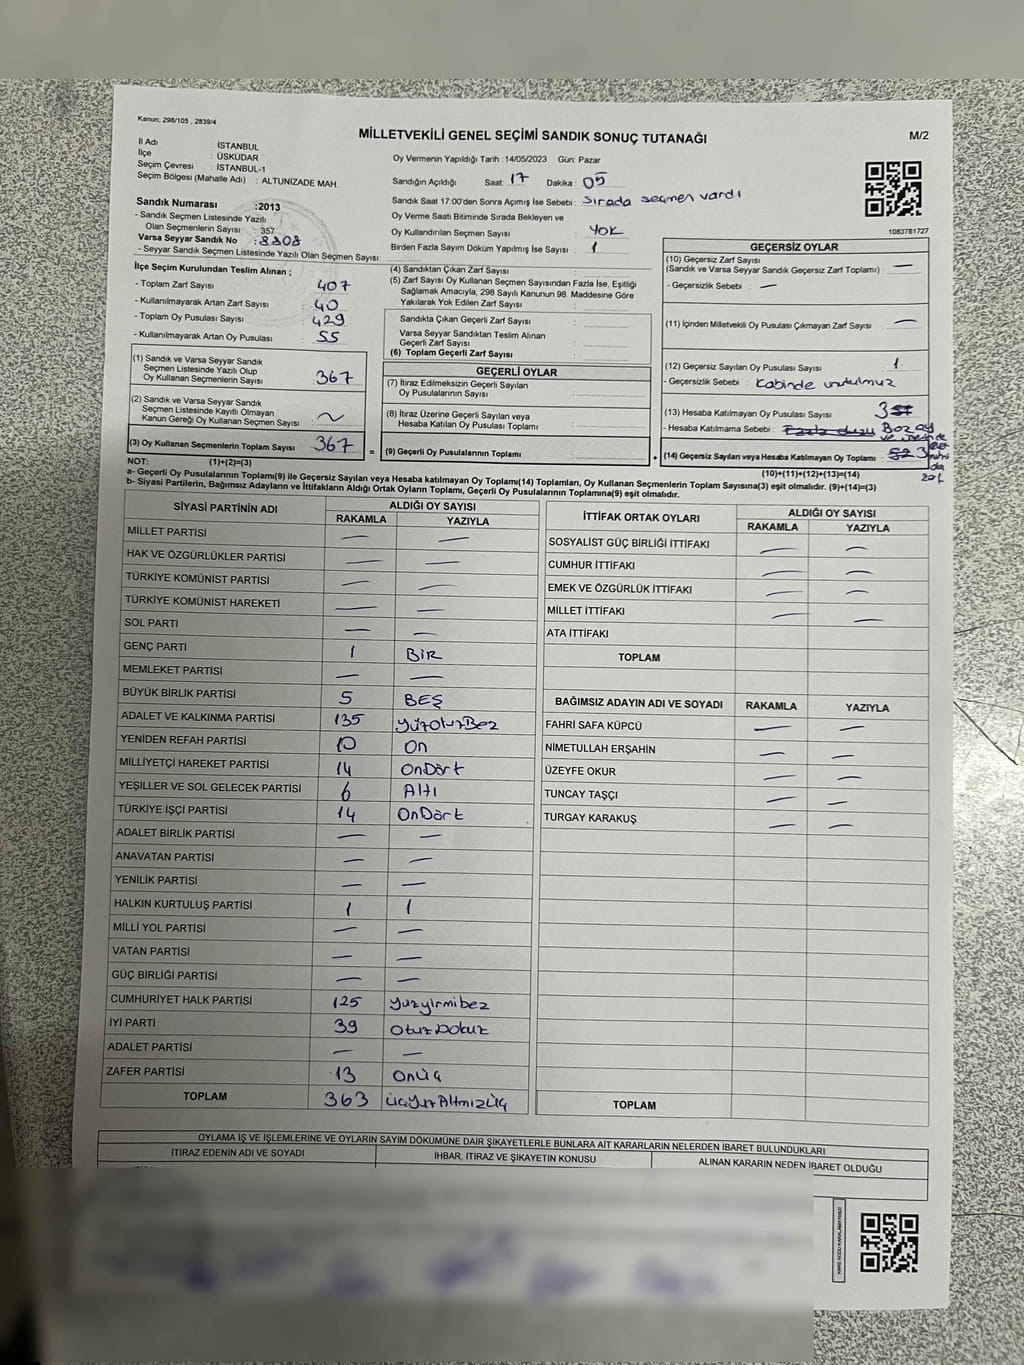 Kanun; 298/105 , 2839/4
MİLLETVEKİLİ GENEL SEÇİMİ SANDIK SONUÇ TUTANAĞI
M/2
İl Adı : İSTANBUL
İlçe : ÜSKÜDAR
Seçim Çevresi : İSTANBUL-1
Seçim Bölgesi (Mahalle Adı) : ALTUNİZADE MAH.
Sandık Numarası :2013
- Sandık Seçmen Listesinde Yazılı
Olan Seçmenlerin Sayısı : 357
Varsa Seyyar Sandık No : 8308
- Seyyar Sandık Seçmen Listesinde Yazılı Olan Seçmen Sayısı:
Oy Vermenin Yapıldığı Tarih : 14/05/2023 Gün: Pazar
Sandığın Açıldığı Saat: 17 Dakika : 05
Sandık Saat 17.00'den Sonra Açımış İse Sebebi: Sırada seçmen vardı
Oy Verme Saati Bitiminde Sırada Bekleyen ve
Oy Kullandırılan Seçmen Sayısı : YOK
Birden Fazla Sayım Döküm Yapılmış İse Sayısı : 1
1083781727
İlçe Seçim Kurulundan Teslim Alınan ;
- Toplam Zarf Sayısı : 407
- Kullanılmayarak Artan Zarf Sayısı : 40
- Toplam Oy Pusulası Sayısı : 429
- Kullanılmayarak Artan Oy Pusulası : 55
(1) Sandık ve Varsa Seyyar Sandık
Seçmen Listesinde Yazılı Olup
Oy Kullanan Seçmenlerin Sayısı : 367
(2) Sandık ve Varsa Seyyar Sandık
Seçmen Listesinde Kayıtlı Olmayan
Kanun Gereği Oy Kullanan Seçmen Sayısı : ~
(3) Oy Kullanan Seçmenlerin Toplam Sayısı : 367 =
(4) Sandıktan Çıkan Zarf Sayısı :
(5) Zarf Sayısı Oy Kullanan Seçmen Sayısından Fazla İse, Eşitliği
Sağlamak Amacıyla, 298 Sayılı Kanunun 98. Maddesine Göre
Yakılarak Yok Edilen Zarf Sayısı :
Sandıkta Çıkan Geçerli Zarf Sayısı :
Varsa Seyyar Sandıktan Teslim Alınan
Geçerli Zarf Sayısı :
(6) Toplam Geçerli Zarf Sayısı :
GEÇERLİ OYLAR
(7) İtiraz Edilmeksizin Geçerli Sayılan
Oy Pusulalarının Sayısı :
(8) İtiraz Üzerine Geçerli Sayılan veya
Hesaba Katılan Oy Pusulası Toplamı :
(9) Geçerli Oy Pusulalarının Toplamı : +
GEÇERSİZ OYLAR
(10) Geçersiz Zarf Sayısı
(Sandık ve Varsa Seyyar Sandık Geçersiz Zarf Toplamı) : —
- Geçersizlik Sebebi : —
(11) İçinden Milletvekili Oy Pusulası Çıkmayan Zarf Sayısı : —
(12) Geçersiz Sayılan Oy Pusulası Sayısı : 1
- Geçersizlik Sebebi : Kabinde unutulmuz
(13) Hesaba Katılmayan Oy Pusulası Sayısı : 3
- Hesaba Katılmama Sebebi : Boz oy
(14) Geçersiz Sayılan veya Hesaba Katılmayan Oy Toplamı : 3
(10)+(11)+(12)+(13)=(14)
NOT: (1)+(2)=(3)
a- Geçerli Oy Pusulalarının Toplamı(9) ile Geçersiz Sayılan veya Hesaba katılmayan Oy Toplamı(14) Toplamları, Oy Kullanan Seçmenlerin Toplam Sayısına(3) eşit olmalıdır. (9)+(14)=(3)
b- Siyasi Partilerin, Bağımsız Adayların ve İttifakların Aldığı Ortak Oyların Toplamı, Geçerli Oy Pusulalarının Toplamına(9) eşit olmalıdır.
SİYASİ PARTİNİN ADI ALDIĞI OY SAYISI
RAKAMLA YAZIYLA
MİLLET PARTİSİ — —
HAK VE ÖZGÜRLÜKLER PARTİSİ — —
TÜRKİYE KOMÜNİST PARTİSİ — —
TÜRKİYE KOMÜNİST HAREKETİ — —
SOL PARTİ — —
GENÇ PARTİ 1 BİR
MEMLEKET PARTİSİ — —
BÜYÜK BİRLİK PARTİSİ 5 BEŞ
ADALET VE KALKINMA PARTİSİ 135 YüzotuzBez
YENİDEN REFAH PARTİSİ 10 On
MİLLİYETÇİ HAREKET PARTİSİ 14 OnDört
YEŞİLLER VE SOL GELECEK PARTİSİ 6 Altı
TÜRKİYE İŞÇİ PARTİSİ 14 OnDört
ADALET BİRLİK PARTİSİ — —
ANAVATAN PARTİSİ — —
YENİLİK PARTİSİ — —
HALKIN KURTULUŞ PARTİSİ 1 1
MİLLİ YOL PARTİSİ — —
VATAN PARTİSİ — —
GÜÇ BİRLİĞİ PARTİSİ — —
CUMHURİYET HALK PARTİSİ 125 Yüzyirmibez
İYİ PARTİ 39 OtuzDokuz
ADALET PARTİSİ — —
ZAFER PARTİSİ 13 Onüç
TOPLAM 363 ÜçYüzAltmızüç
İTTİFAK ORTAK OYLARI ALDIĞI OY SAYISI
RAKAMLA YAZIYLA
SOSYALİST GÜÇ BİRLİĞİ İTTİFAKI — —
CUMHUR İTTİFAKI — —
EMEK VE ÖZGÜRLÜK İTTİFAKI — —
MİLLET İTTİFAKI — —
ATA İTTİFAKI
TOPLAM
BAĞIMSIZ ADAYIN ADI VE SOYADI RAKAMLA YAZIYLA
FAHRİ SAFA KÜPCÜ — —
NİMETULLAH ERŞAHİN — —
ÜZEYFE OKUR — —
TUNCAY TAŞÇI — —
TURGAY KARAKUŞ — —
TOPLAM
OYLAMA İŞ VE İŞLEMLERİNE VE OYLARIN SAYIM DÖKÜMÜNE DAİR ŞİKAYETLERLE BUNLARA AİT KARARLARIN NELERDEN İBARET BULUNDUKLARI
İTİRAZ EDENİN ADI VE SOYADI İHBAR, İTİRAZ VE ŞİKAYETİN KONUSU ALINAN KARARIN NEDEN İBARET OLDUĞU